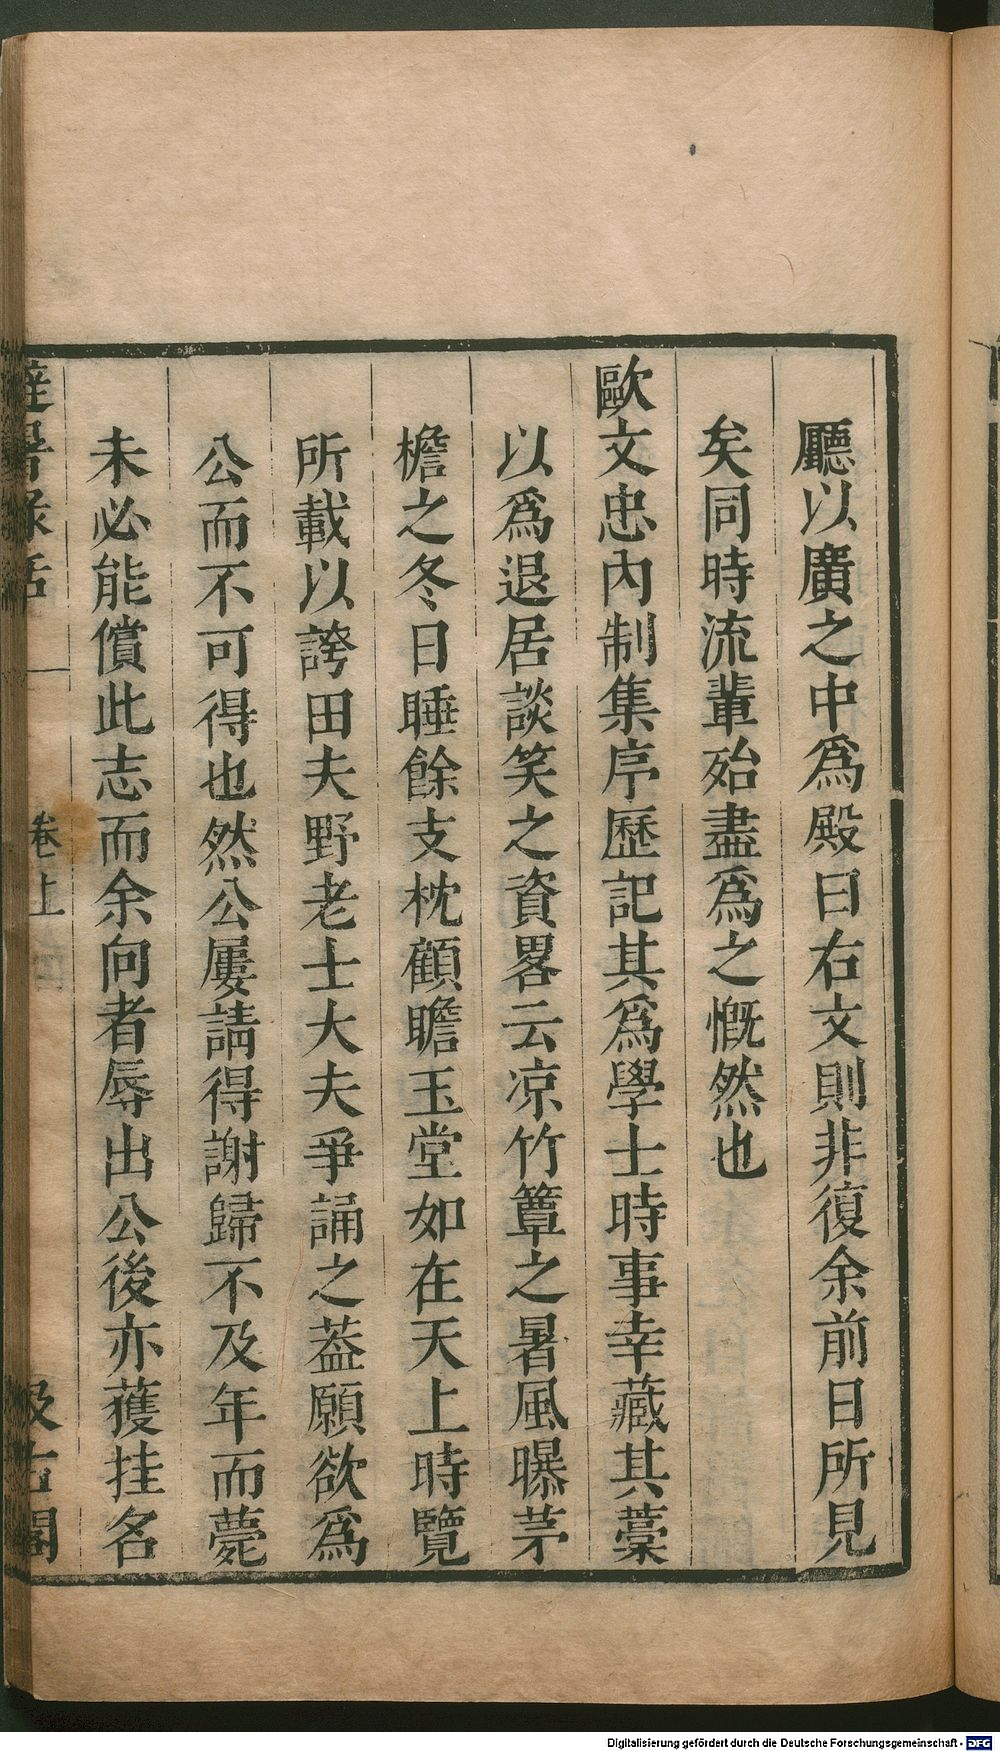 廳以廣之中爲殿曰右文則非復余前日所見
矣同時流輩殆盡爲之慨然也
歐文忠內制集序歷記其爲學士時事幸藏其藳
以爲退居談笑之資畧云凉竹簟之暑風曝茅
檐之冬日睡餘支枕顧瞻玉堂如在天上時覽
所載以誇田夫野老士大夫爭誦之葢願欲爲
公而不可得也然公屢請得謝歸不及年而薨
未必能償此志而余向者辱出公後亦獲挂名
避暑錄話
卷上
汲古閣
Digitalisierung gefördert durch die Deutsche Forschungsgemeinschaft - DFG